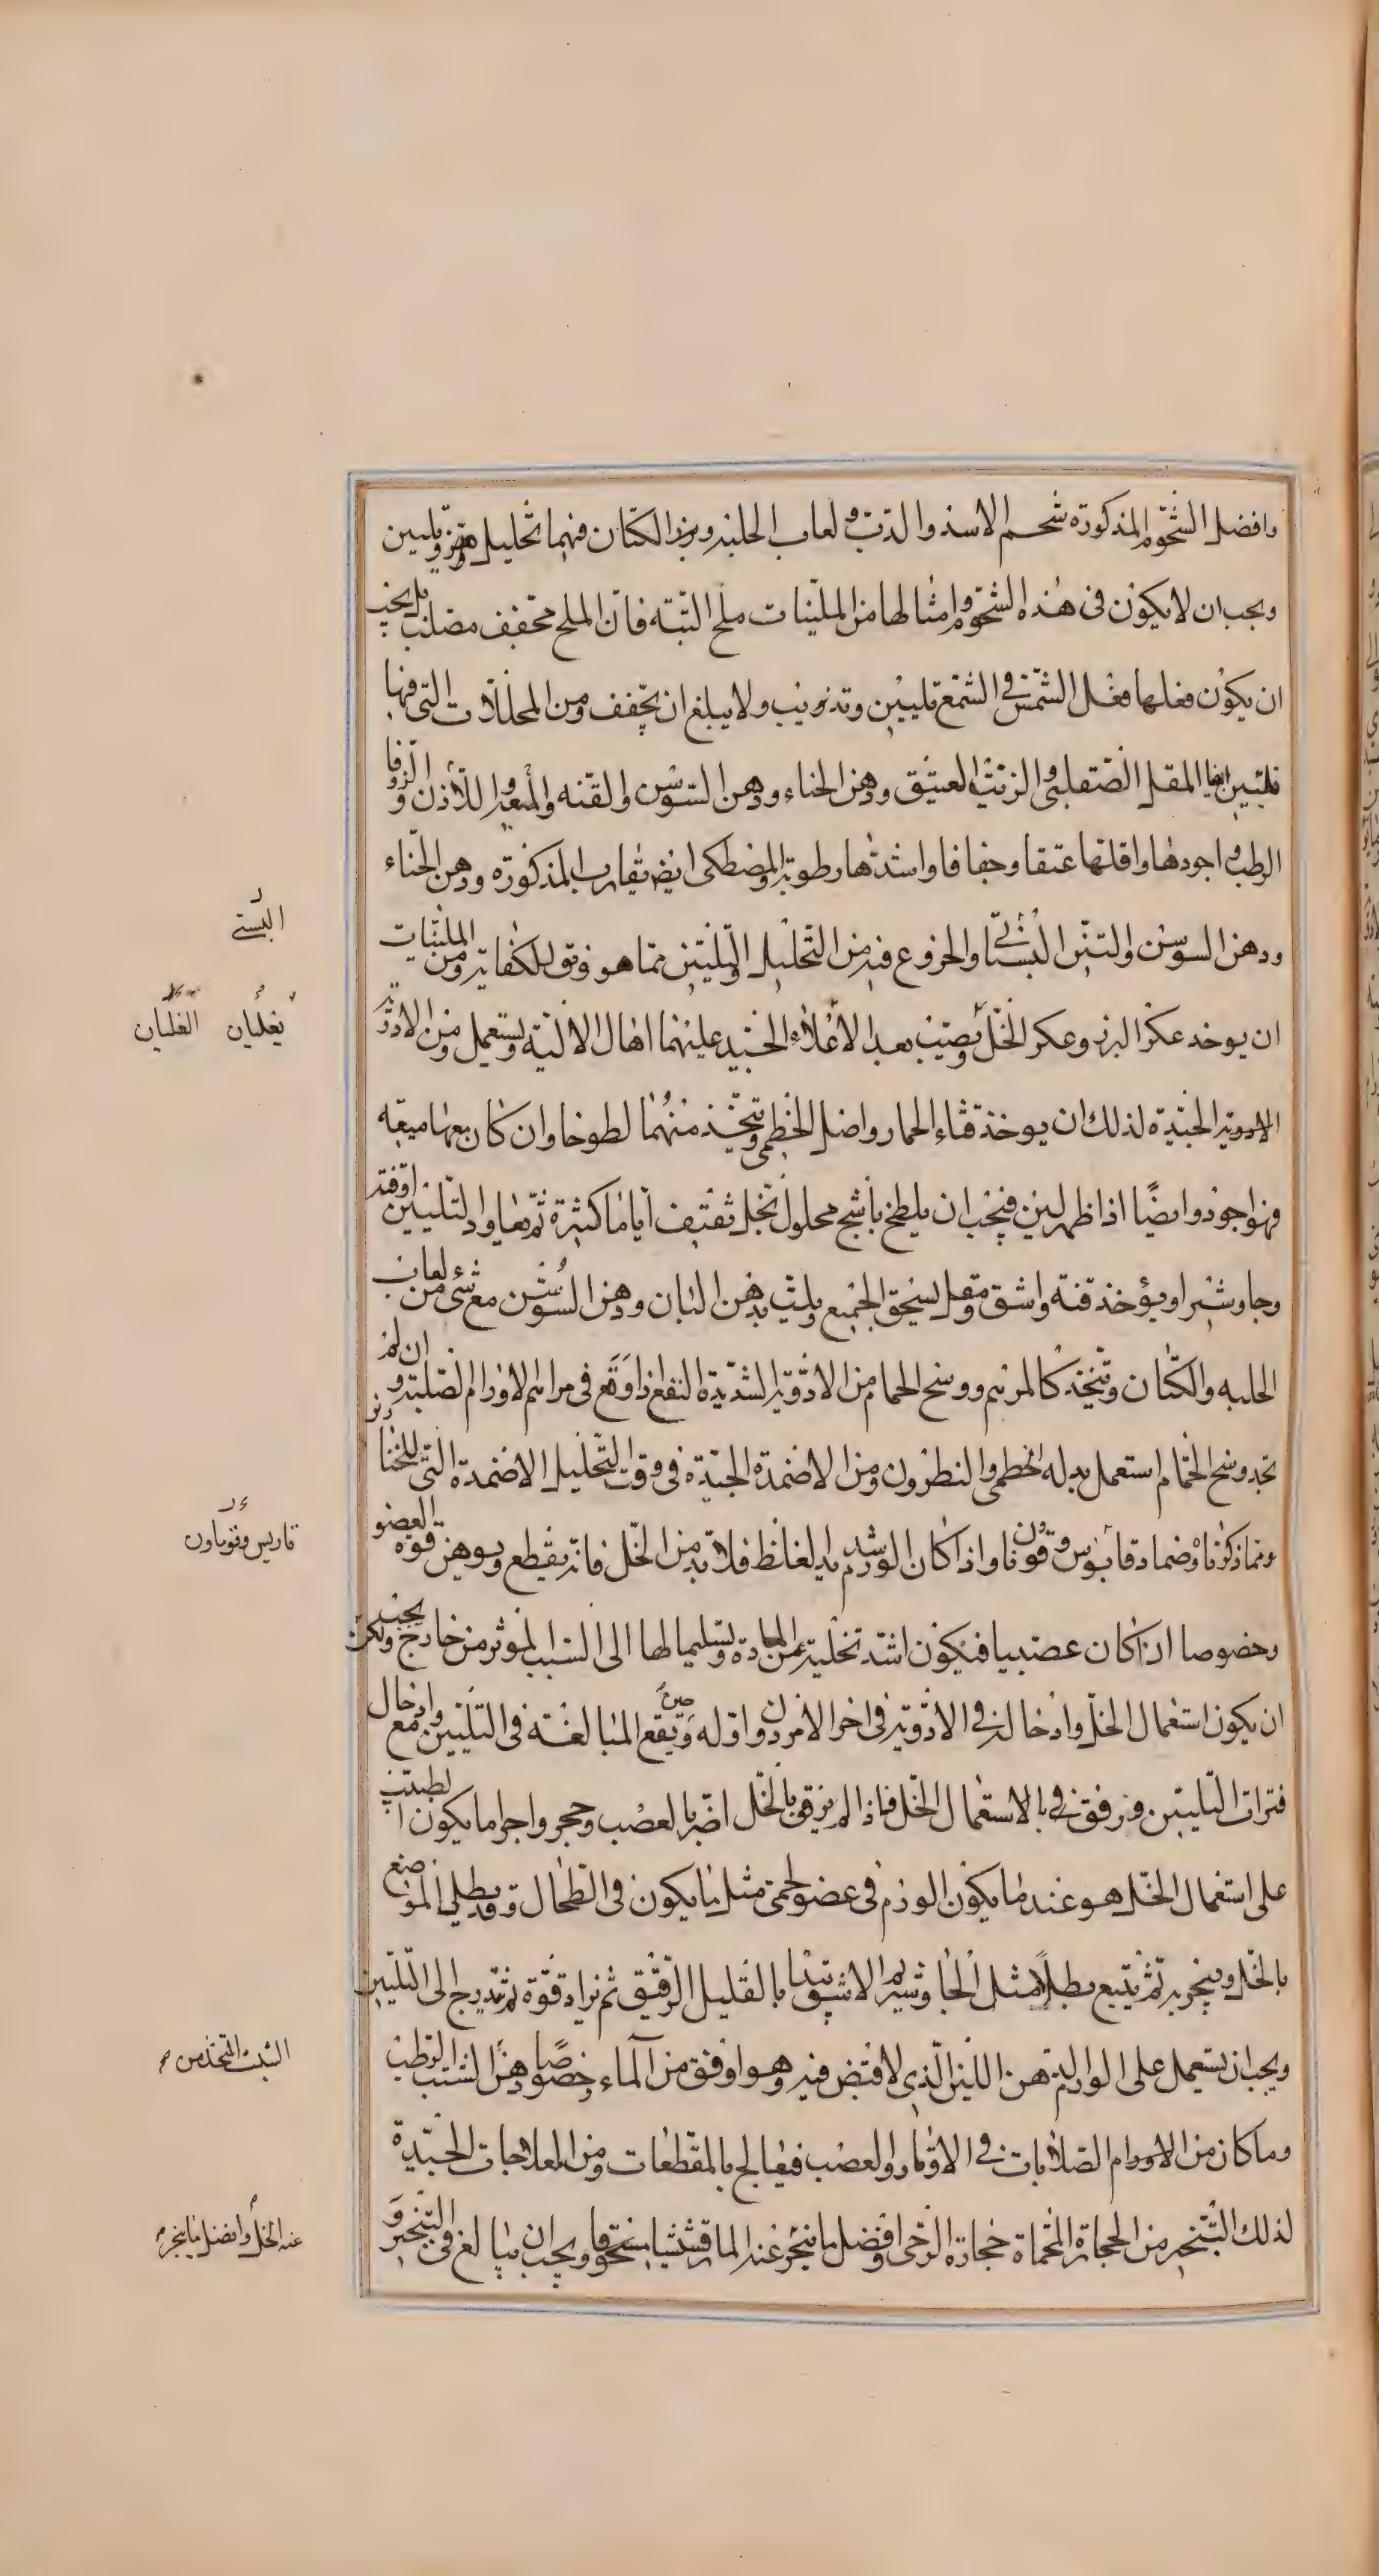 وافضل الشحوم المذكورة شحم الاسد والدب ولعاب الحلبه وبزر الكتان فيهما تحليل وتليين
ويجب ان لا يكون فى هذه الشحوم وامثالها من الملينات ملح البته فان الملح مجفف مصلب بل يجب
ان يكون فعلها فعل الشمس فى الشمع تليين وتذويب ولا يبلغ ان يجفف ومن المحللات التى فيها
تليين ايضا المقل الصقلبى والزيت العتيق ودهن الحناء ودهن السوسن والقنه والميعه واللاذن والزوفا
الرطب واجودها واقلها عتقا وجفافا واشدها رطوبة والمصطكى ايضا تقارب المذكورة ودهن الحناء
ودهن السوسن والتين البستانى والخروع فيه من التحليل والتليين مما هو فوق الكفاية ومن الملينات
ان يوخد عكر البزر وعكر الخل ويصيب بعد الاغلاء الجيد عليهما اهال الالية ويستعمل ومن الادوية
الادوية الجيدة لذلك ان يوخذ قثاء الحمار واصل الخطمى ويتخذ منهما لطوخا وان كان معها ميعه
فهو اجود وايضًا اذا ظهر لين فيجب ان يلطخ باشج محلول بخل ثقيف اياما كثيرة ثم يعاود التليين او قنة
وجاوشير او يؤخذ قنة واشق ومقل يسحق الجميع ويلت بدهن البان ودهن السوسن مع شئ من لعاب
الحلبه والكتان ويتخذ كالمرهم ووسخ الحمام من الادوية الشديدة النفع اذا وقع فى مراهم الاورام الصلبة وان لم
تجد وسخ الحمام استعمل بدله الخطمى والنطرون ومن الاضمدة الجيدة فى وقت التحليل الاضمدة التى للخنازير
ومما ذكرنا وضماد قابوس وقونونا واذا كان الورم شديد الغلظ فلا بد من الخل فانه يقطع ويوهن قوة العضو
وخصوصا ان كان عصبيا فيكون اشد تخلية عن المادة وتسليما لها الى السبب الموثر من خارج ولكن يجب
ان يكون استعمال الخل وادخاله فى الادوية فى اخر الامر دون اوله وحين يقع المبالغة فى التليين وادخال مع
فترات التليين ورفق فى الاستعمال الخل فاذا لم يرفق بالخل اضر بالعصب وحجر واجرا ما يكون الطبيب
على استعمال الخل هو عند ما يكون الورم فى عضو لحمى مثل ما يكون فى الطحال وقد يطلى الموضع
بالخل ويبخر به ثم يتبع بطلا مثل الجاوشير والاشق يبتدا بالقليل الرقيق ثم يزاد قوة ثم يتدرج الى التليين
ويجب ان يستعمل على الورم ادامة دهن اللين الذى لا قبض فيه وهو اوفق من الماء وخصوصًا دهن الشبت الرطب
وما كان من الاورام الصلابات فى الاوتار والعصب فيعالج بالمقطعات ومن المعلاجات الجيدة
لذلك التبخير من الحجارة المحماة حجارة الرحى وافضل ما تبخر عند المارقشيشا مستحوقا ويجب ان يبالغ فى التبخير و
البستى
يغليان الغليان
قاريس وقوباون
الشبت المتخذ من
عنه الخل وافضل ما يتبخر